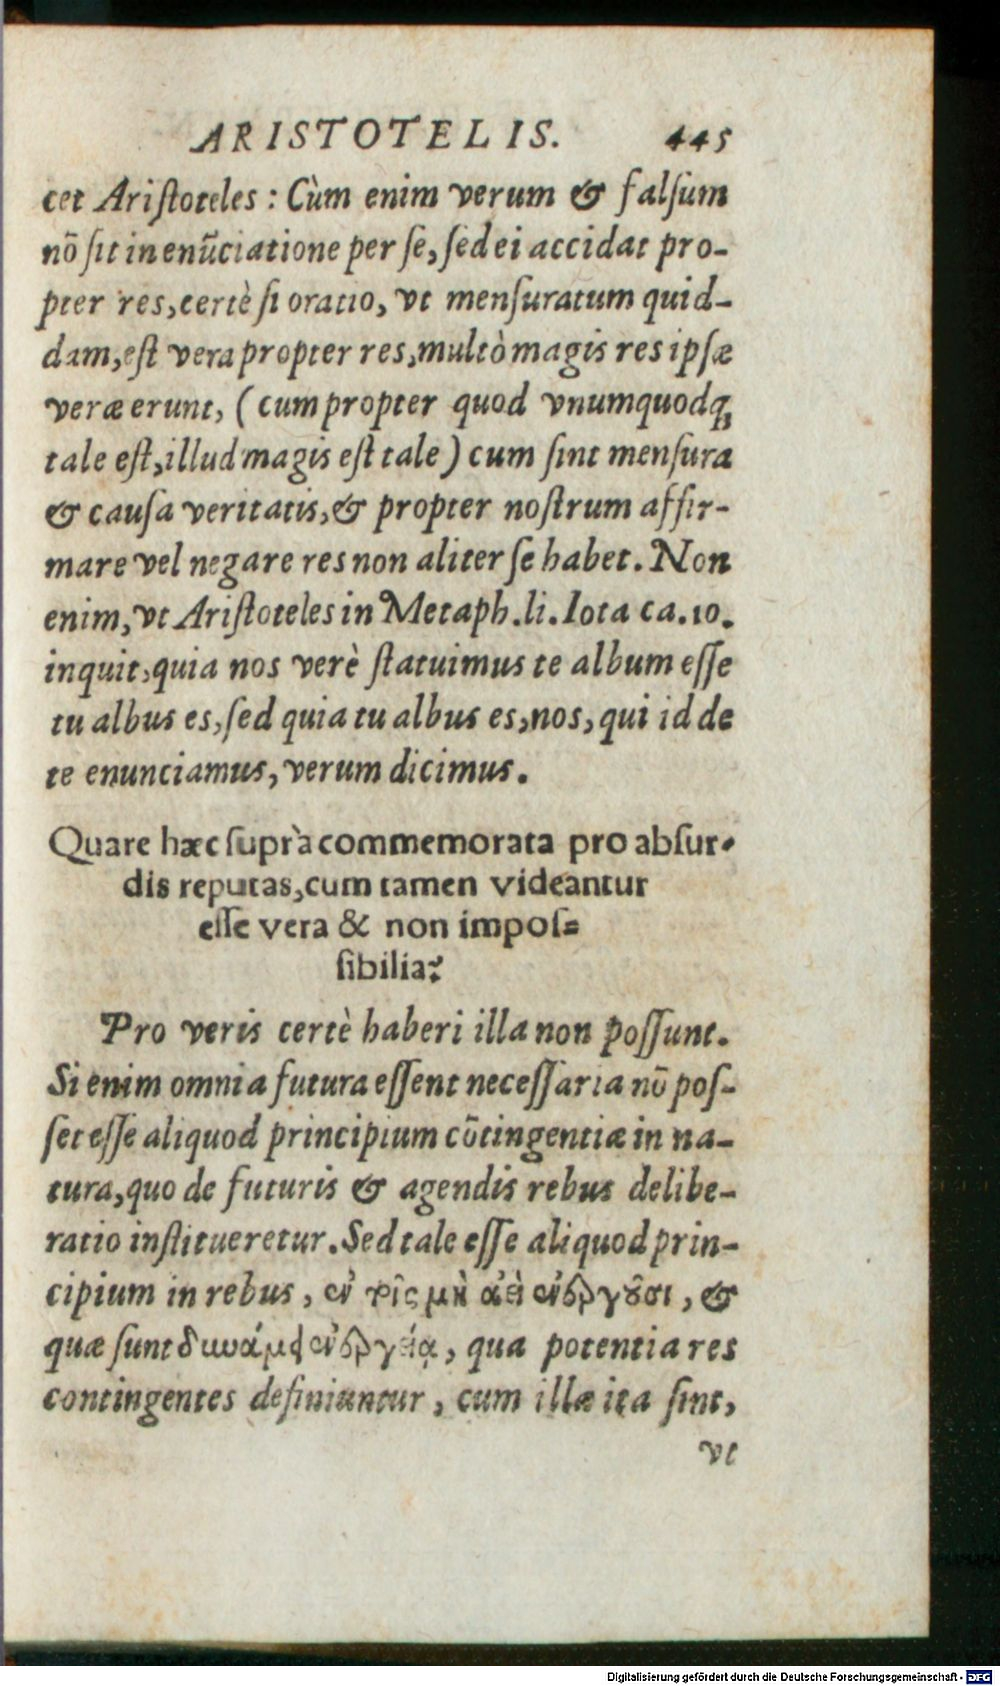 ARISTOTELIS. 445
cet Ariſtoteles : Cùm enim verum & falſum
nō ſit in enūciatione per ſe, ſed ei accidat pro-
pter res, certè ſi oratio, vt menſuratum quid-
dam, eſt vera propter res, multò magis res ipſæ
veræ erunt, (cum propter quod vnumquodq;
tale eſt, illud magis eſt tale) cum ſint menſura
& cauſa veritatis, & propter noſtrum affir-
mare vel negare res non aliter ſe habet. Non
enim, vt Ariſtoteles in Metaph. li. Iota ca. 10.
inquit, quia nos verè ſtatuimus te album eſſe
tu albus es, ſed quia tu albus es, nos, qui id de
te enunciamus, verum dicimus.
Quare hæc ſuprà commemorata pro abſur-
dis reputas, cum tamen videantur
eſſe vera & non impoſ-
ſibilia?
Pro veris certè haberi illa non poſſunt.
Si enim omnia futura eſſent neceſſaria nō poſ-
ſet eſſe aliquod principium cōtingentiæ in na-
tura, quo de futuris & agendis rebus delibe-
ratio inſtitueretur. Sed tale eſſe aliquod prin-
cipium in rebus, ἐν τοῖς μὴ ἀεὶ ἐνεργοῦσι, &
quæ ſunt δυνάμει ἐνεργείᾳ, qua potentia res
contingentes definiuntur, cum illæ ita ſint,
vt
Digitalisierung gefördert durch die Deutsche Forschungsgemeinschaft - DFG